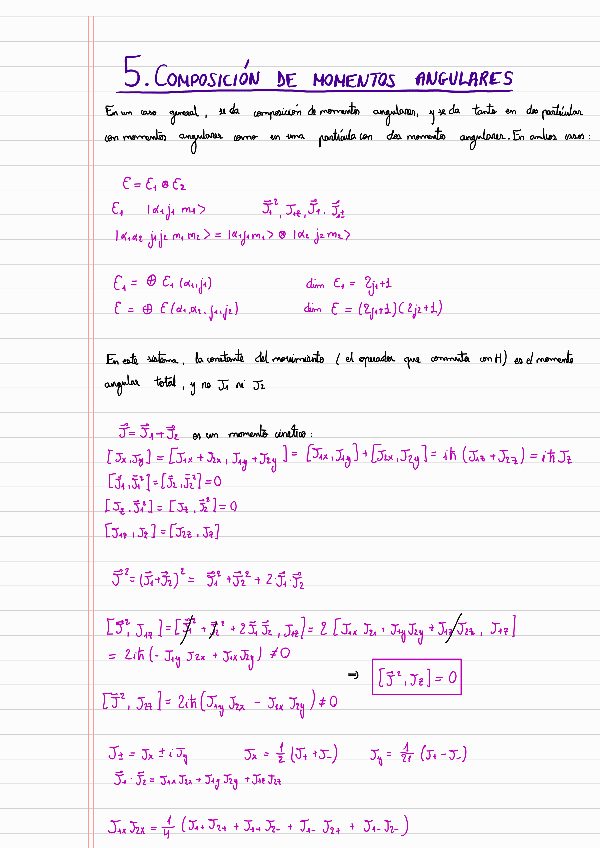 5. COMPOSICIÓN DE MOMENTOS ANGULARES
En un caso general, se da composición de momentos angulares, y se da tanto en dos partículas
con momentos angulares como en una partícula con dos momentos angulares. En ambos casos:
ℰ = ℰ₁ ⊗ ℰ₂
ℰ₁ |α₁ j₁ m₁> J⃗₁², J₁z, J⃗₁ · J⃗₁±
|α₁α₂ j₁j₂ m₁m₂> = |α₁j₁m₁> ⊗ |α₂ j₂ m₂>
ℰ₁ = ⊕ ℰ₁(α₁,j₁) dim ℰ₁ = 2j₁+1
ℰ = ⊕ ℰ(α₁,α₂,j₁,j₂) dim ℰ = (2j₁+1)(2j₂+1)
En este sistema, la constante del movimiento (el operador que conmuta con H) es el momento
angular total, y no J₁ ni J₂
J⃗ = J⃗₁ + J⃗₂ es un momento cinético:
[Jx, Jy] = [J₁x + J₂x, J₁y + J₂y] = [J₁x, J₁y] + [J₂x, J₂y] = iℏ (J₁z + J₂z) = iℏ Jz
[J⃗₁, J⃗₁²] = [J⃗₂, J⃗₂²] = 0
[Jz, J⃗₁²] = [Jz, J⃗₂²] = 0
[J₁z, Jz] = [J₂z, Jz]
J⃗² = (J⃗₁ + J⃗₂)² = J⃗₁² + J⃗₂² + 2 J⃗₁ · J⃗₂
[J⃗², J₁z] = [J⃗₁² + J⃗₂² + 2J⃗₁J⃗₂, J₁z] = 2 [J₁x J₂x + J₁y J₂y + J₁z J₂z, J₁z]
= 2iℏ (- J₁y J₂x + J₁x J₂y) ≠ 0
⇒ [J⃗², Jz] = 0
[J⃗², J₂z] = 2iℏ (J₁y J₂x - J₁x J₂y) ≠ 0
J± = Jx ± i Jy Jx = 1/2 (J₊ + J₋) Jy = 1/2i (J₊ - J₋)
J⃗₁ · J⃗₂ = J₁x J₂x + J₁y J₂y + J₁z J₂z
J₁x J₂x = 1/4 (J₁₊ J₂₊ + J₁₊ J₂₋ + J₁₋ J₂₊ + J₁₋ J₂₋)